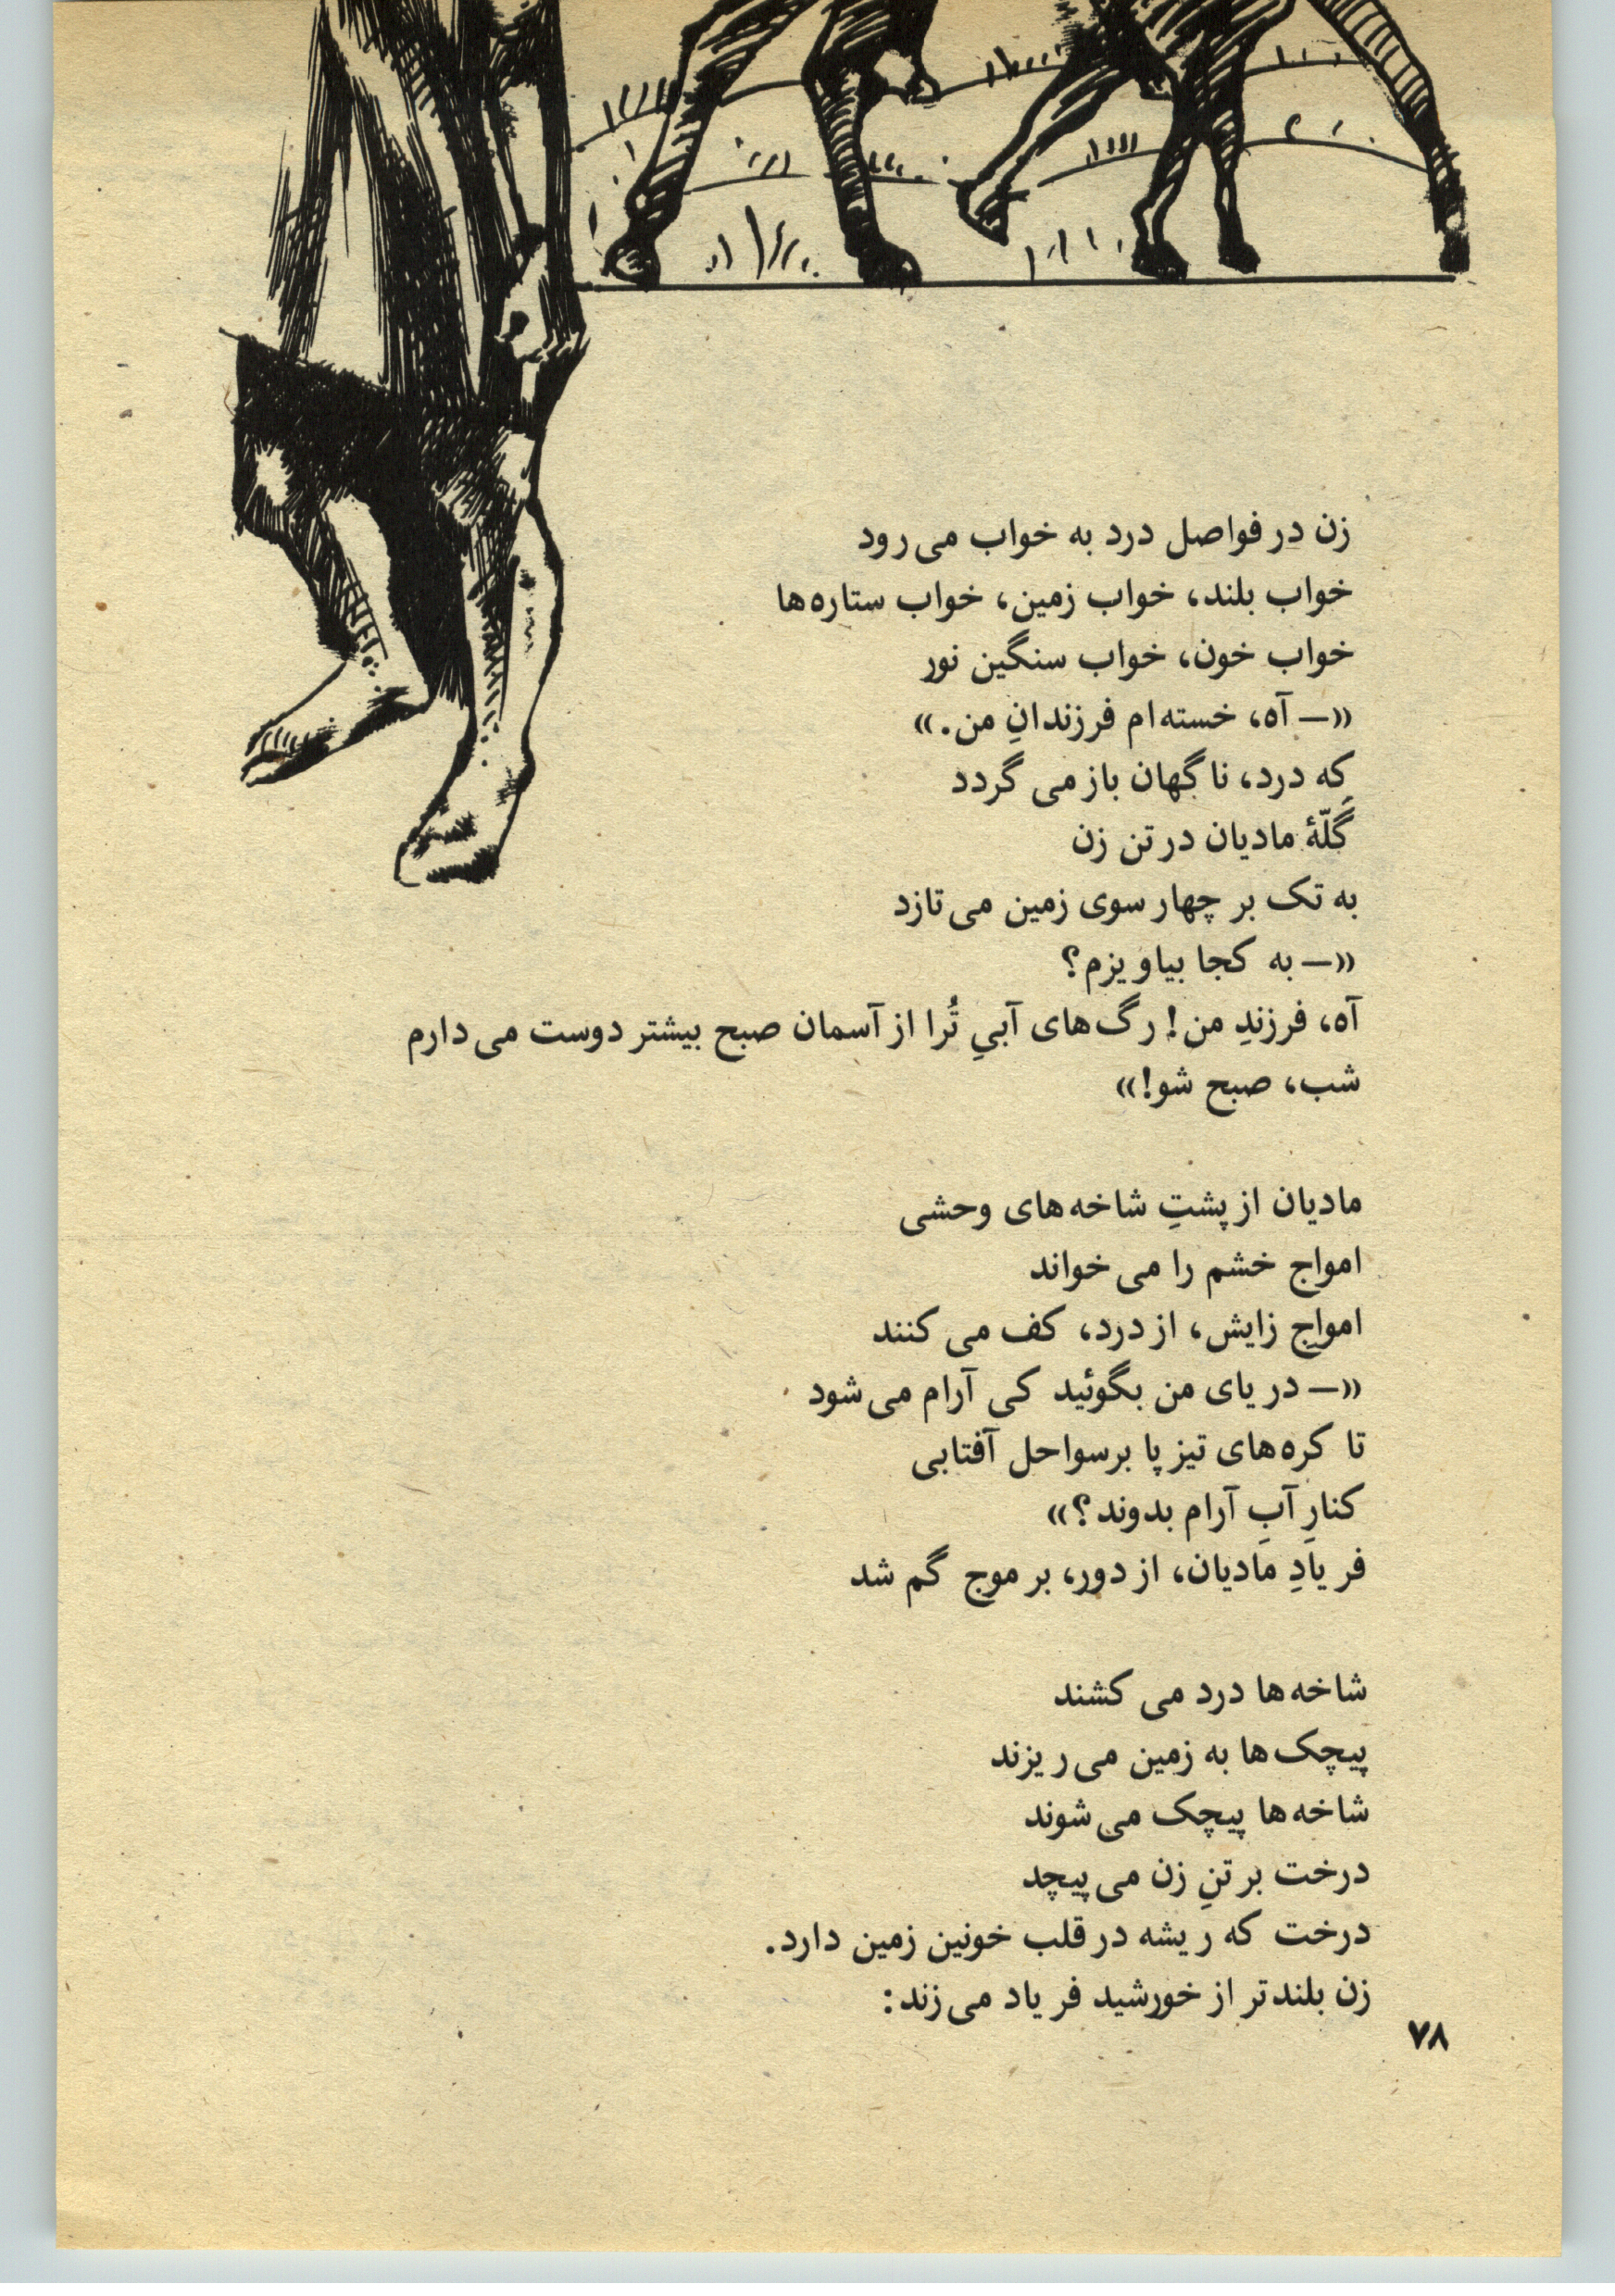 زن در فواصل درد به خواب می‌رود
خواب بلند، خواب زمین، خواب ستاره‌ها
خواب خون، خواب سنگین نور
«— آه، خسته‌ام فرزندانِ من.»
که درد، ناگهان باز می‌گردد
گَلّهٔ مادیان در تن زن
به تک بر چهار سوی زمین می‌تازد
«— به کجا بیاویزم؟
آه، فرزندِ من! رگ‌های آبیِ تُرا از آسمان صبح بیشتر دوست می‌دارم
شب، صبح شو!»

مادیان از پشتِ شاخه‌های وحشی
امواج خشم را می‌خواند
امواج زایش، از درد، کف می‌کنند
«— دریای من بگوئید کی آرام می‌شود
تا کره‌های تیزپا برسواحل آفتابی
کنارِ آبِ آرام بدوند؟»
فریادِ مادیان، از دور، بر موج گم شد

شاخه‌ها درد می‌کشند
پیچک‌ها به زمین می‌ریزند
شاخه‌ها پیچک می‌شوند
درخت بر تنِ زن می‌پیچد
درخت که ریشه در قلب خونین زمین دارد.
زن بلندتر از خورشید فریاد می‌زند:
۷۸